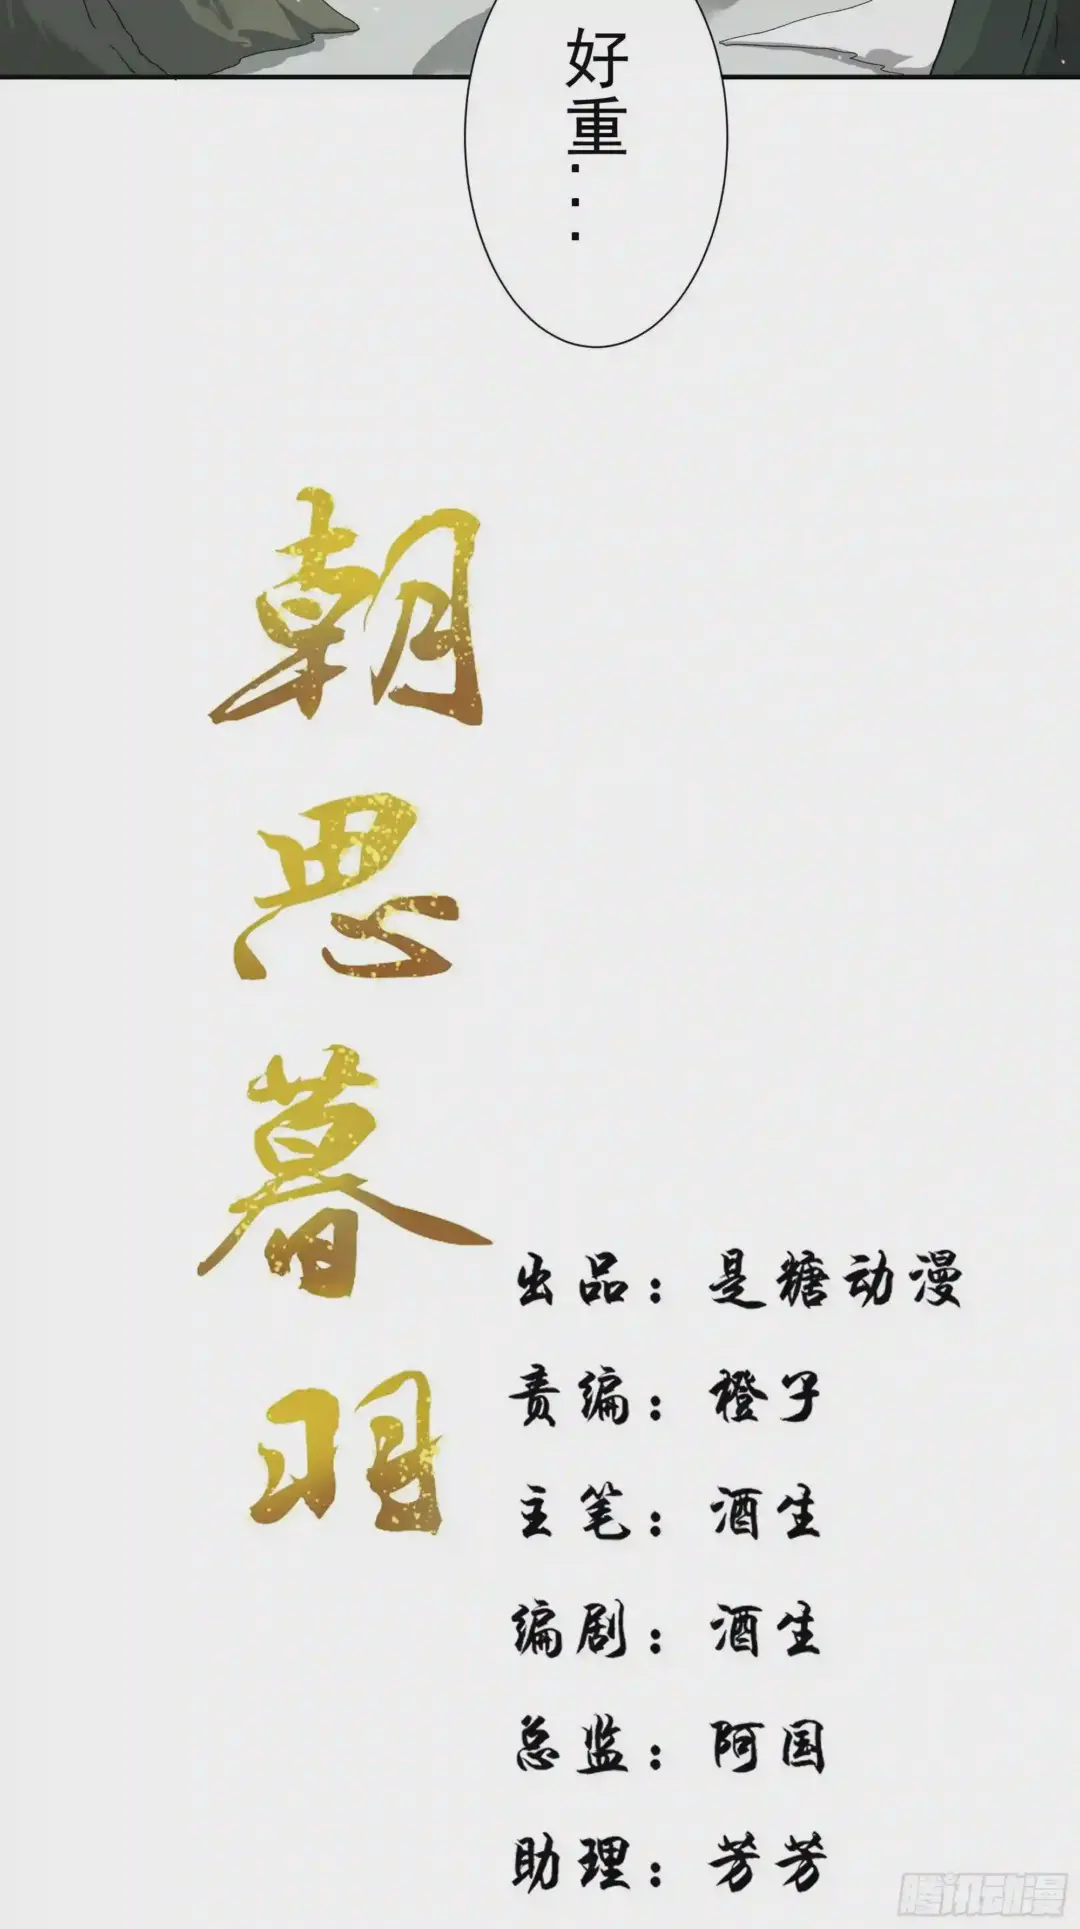 好重...
朝思暮羽
出品：是糖动漫
责编：橙子
主笔：酒生
编剧：酒生
总监：阿国
助理：芳芳
腾讯动漫